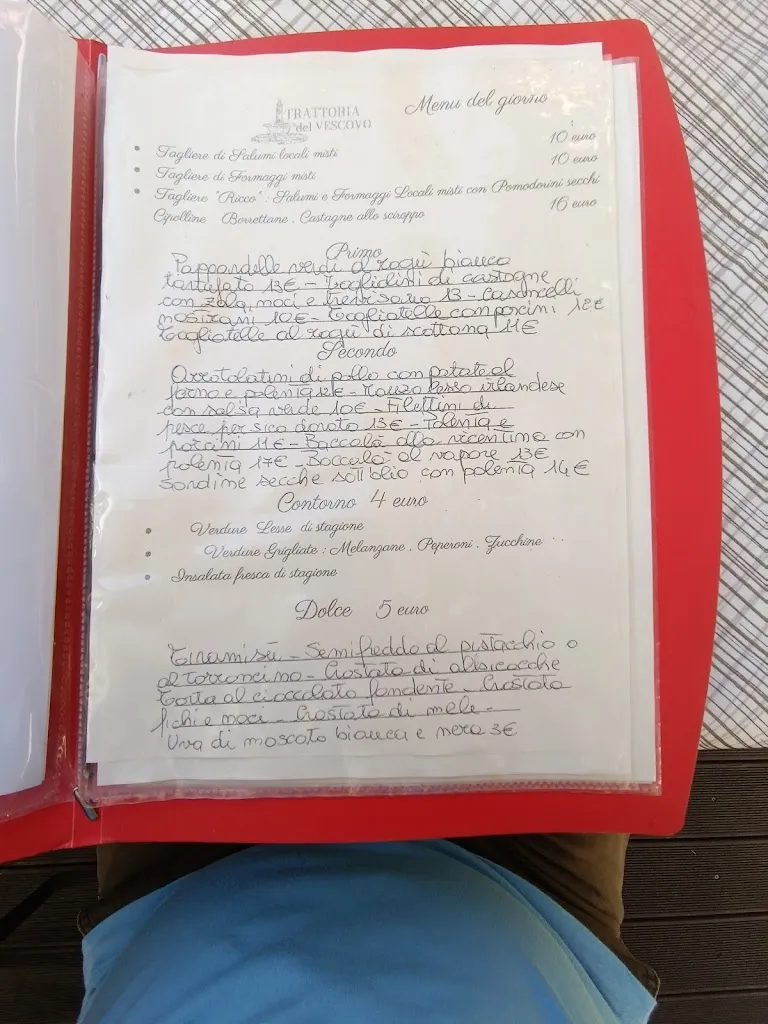 TRATTORIA
del VESCOVO
Menu del giorno
• Tagliere di Salumi locali misti 10 euro
• Tagliere di Formaggi misti 10 euro
• Tagliere "Ricco" : Salumi e Formaggi Locali misti con Pomodorini secchi
Cipolline Borrettane , Castagne allo sciroppo 16 euro
Primo
Pappardelle verdi al ragù bianco
tartufato 13€ - Tagliolini di castagne
con zola, noci e 13 - Casoncelli
nostrani 10€ - Tagliatelle con porcini 12€
Tagliatelle al ragù di scottona 11€
Secondo
Arrotolatini di pollo con patate al
forno e polenta 12€ - Manzo lesso irlandese
con salsa verde 10€ - Filettini di
pesce persico dorato 13€ - Polenta e
porcini 11€ - Baccalà alla vicentina con
polenta 17€ - Baccalà al vapore 13€
Sardine secche sott'olio con polenta 14€
Contorno 4 euro
• Verdure Lesse di stagione
• Verdure Grigliate : Melanzane , Peperoni , Zucchine
• Insalata fresca di stagione
Dolce 5 euro
Tiramisù - Semifreddo al pistacchio o
al torroncino - Crostata di albicocche
Torta al cioccolato fondente - Crostata
fichi e noci - Crostata di mele -
Uva di moscato bianca e nera 3€